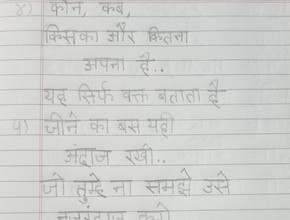 ४) कौन, कब,
किसका और कितना
अपना है..
यह सिर्फ वक्त बताता है
५) जीने का बस यही
अंदाज रखो..
जो तुम्हे ना समझे उसे